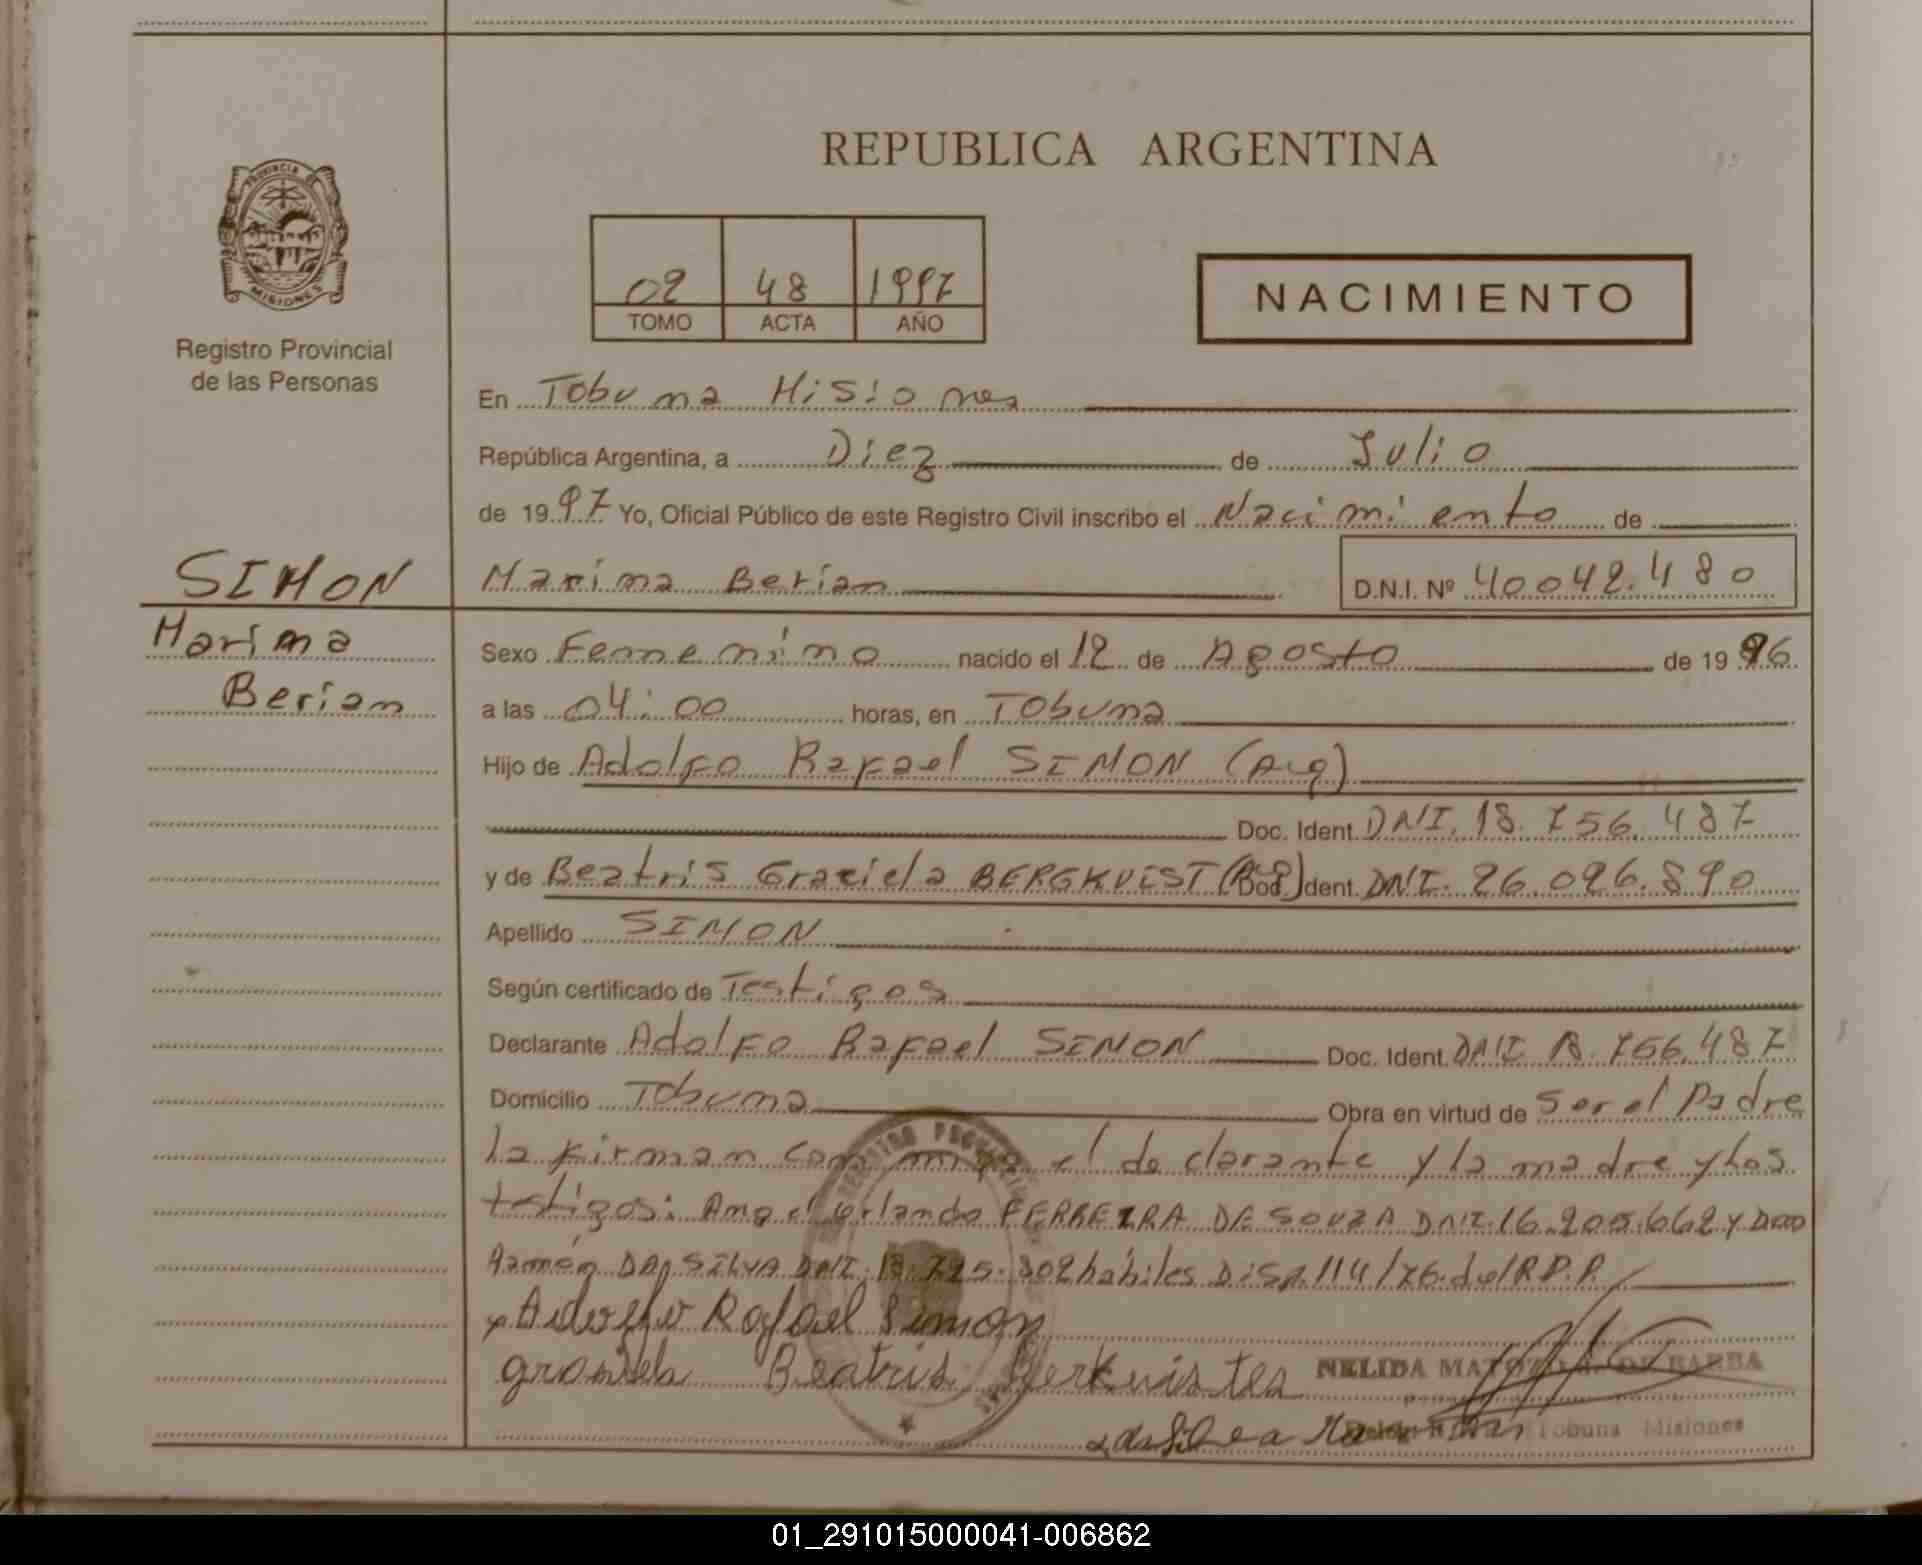 REPUBLICA ARGENTINA
PROVINCIA DE
MISIONES
Registro Provincial
de las Personas
02 48 1997
TOMO ACTA AÑO
NACIMIENTO
En Tobuna Misiones
República Argentina, a Diez de Julio
de 1997 Yo, Oficial Público de este Registro Civil inscribo el Nacimiento de
SIMON
Marima Berian D.N.I. Nº 40042.480
Marima
Berian
Sexo Femenino nacido el 12 de Agosto de 1996
a las 04:00 horas, en Tobuna
Hijo de Adolfo Rafael SIMON (Arg)
Doc. Ident. DNI. 18.756.487
y de Beatris Graciela BERGKVIST Doc. Ident. DNI. 26.096.890
Apellido SIMON
Según certificado de Testigos
Declarante Adolfo Rafael SIMON Doc. Ident. DNI 18.756.487
Domicilio Tobuna Obra en virtud de Ser el Padre
la firman conmigo el declarante y la madre y los
testigos: Angel Orlando FERREIRA DE SOUZA DNI. 16.205.662 y
Ramón DA SILVA DNI. habiles Disp. 114/76. del R.P.P.
Adolfo Rafael Simon
Beatris
NELIDA DE BARBA
Tobuna Misiones
01_291015000041-006862